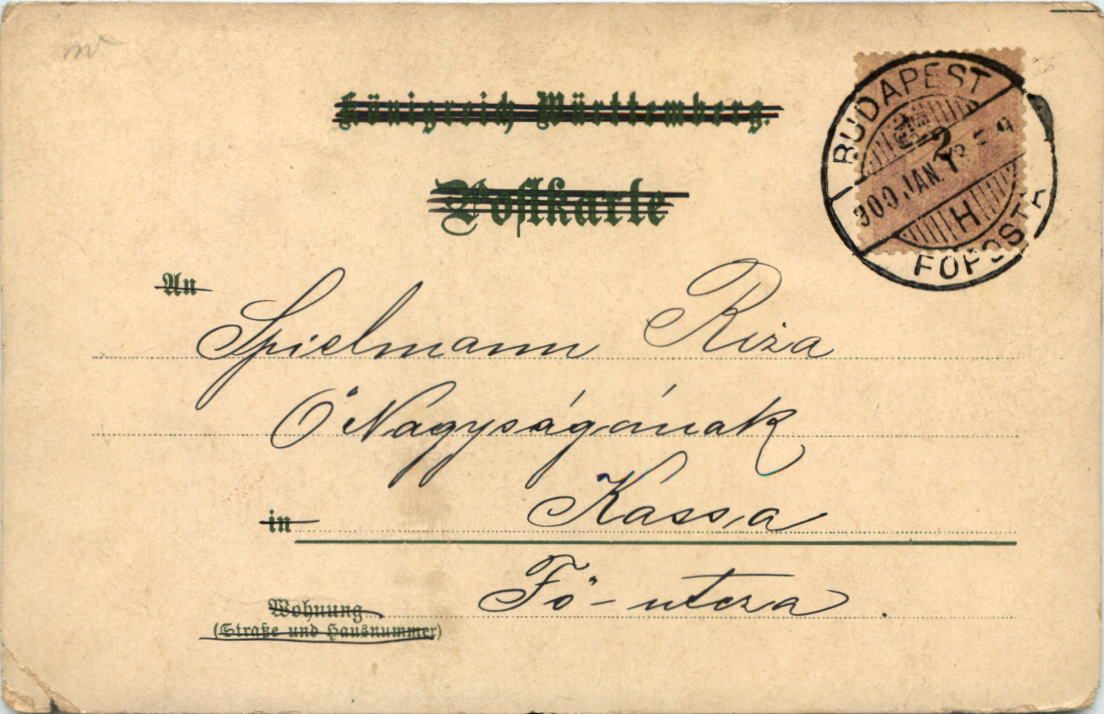 Königreich Württemberg.
Postkarte
BUDAPEST
900 JAN. 18
H
FŐPOSTA
An
Spielmann Riza
Ő Nagyságának
in
Kassa
Wohnung
Fő-utcza
(Straße und Hausnummer)